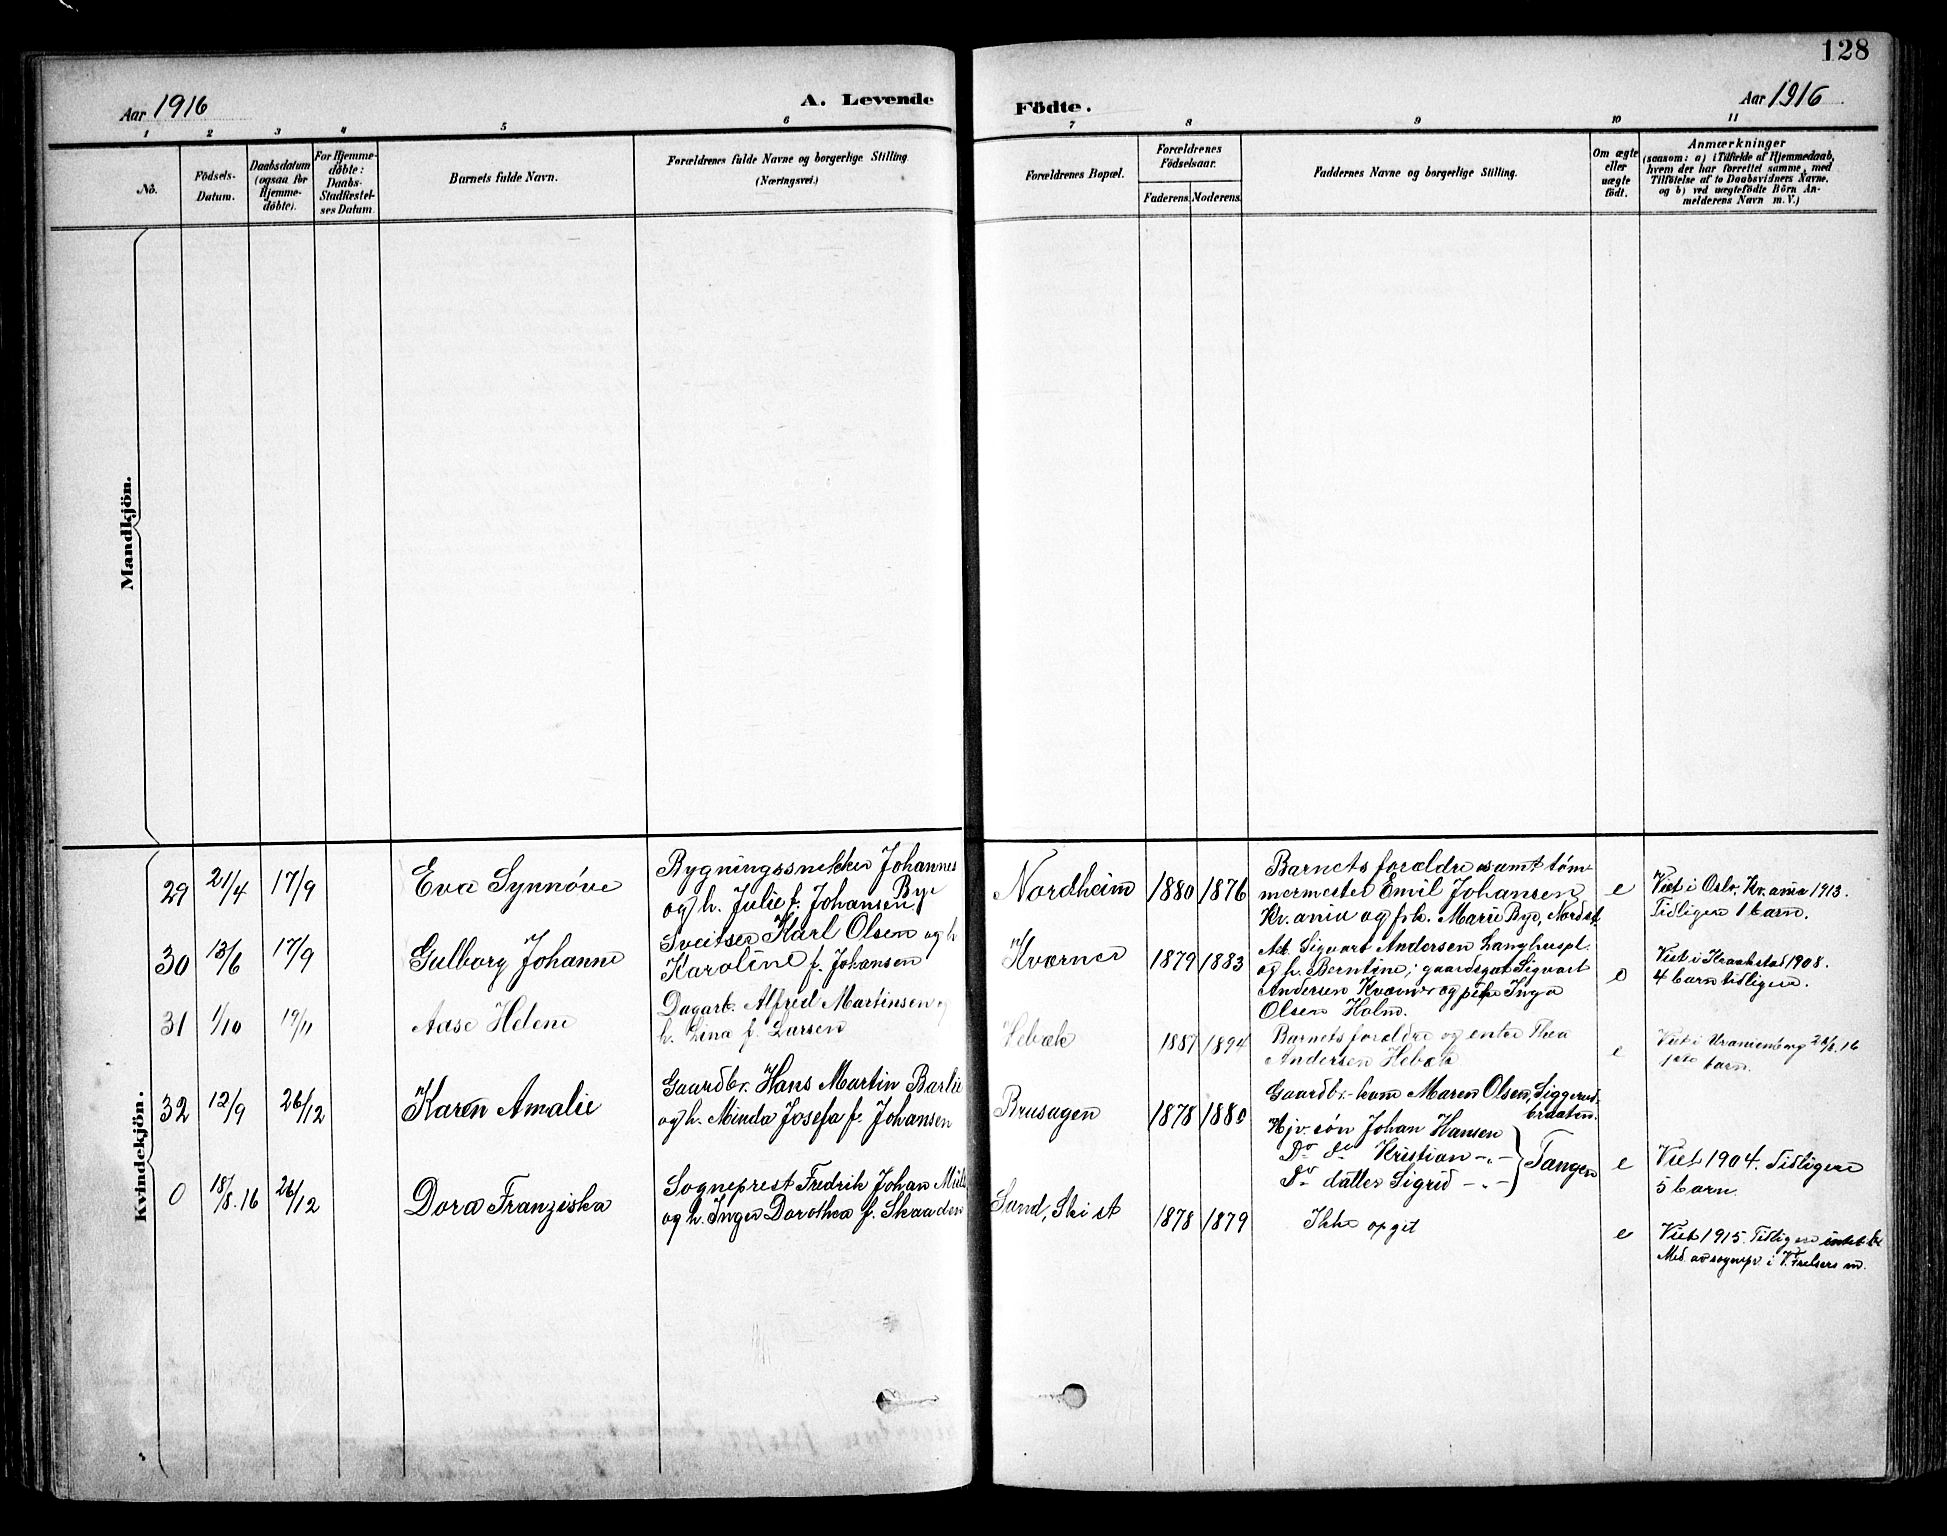 128
Aar 1916
A. Levende
Födte.
Aar 1916
1 2 3 4 5 6 7 8 9 10 11
No.
Födsels-
Datum.
Daabsdatum
(ogsaa for
Hjemme-
döbte).
For Hjemme-
döbte:
Daabs-
Stadfæstel-
ses Datum
Barnets fulde Navn.
Forældrenes fulde Navne og borgerlige Stilling
(Næringsvei.)
Forældrenes Bopæl.
Forældrenes
Födselsaar.
Faderens. Moderens.
Faddernes Navne og borgerlige Stilling.
Om ægte
eller
uægte
födt.
Anmærkninger
(saasom: a) i Tilfælde af Hjemmedaab,
hvem der har forrettet samme, med
Tilföielse af to Daabsvidners Navne.
og b) ved uægtefödte Börn An-
melderens Navn m. V.)
Mandkjön.
Kvindekjön.
29 21/4 17/9 Eva Synnöve
Bygningssnekker Johannes
Bye
og h. Julie f. Johansen
Nordheim 1880 1876
Barnets forældre samt töm-
mermester Emil Johansen
Kr.ania og frk. Marie Bye, Nordst.
e
Viet i Oslo, Kr.ania 1913.
Tidligere 1 barn.
30 13/6 17/9 Gulborg Johanne
Sveitser Karl Olsen og h
Karoline f. Johansen
Kværner 1879 1883
Arb. Sigvart Andersen Langhuspl.
og h. Berntine; gaardsgut Sigvart
Andersen Kværner og pike Inga
Olsen Holm.
e
Viet i Kraakstad 1908.
4 barn tidligere.
31 1/10 19/11 Aase Helene
Dagarb. Alfred Martinsen og
h. Lina f. Larsen
Hebæk 1887 1894
Barnets forældre og enke Thea
Andersen Hebæk
e
Viet i Uranienborg 16
1ste barn.
32 12/9 26/12 Karen Amalie
Gaardbr. Hans Martin Barlie
og h. Minda Josefa f. Johansen
Brusagen 1878 1880
Gaardbr.-kone Maren Olsen, Siggerud-
braaten.
Hjv. sön Johan Hansen
Do do Kristian -"-
Do datter Sigrid -"-
Tangen
e
Viet 1904. Tidligere
5 barn.
0 18/8.16 26/12 Dora Franziska
Sogneprest Fredrik Johan
og h. Inger Dorothea f. Skaaden
Sand, Ski st 1878 1879
Ikke opget
e
Viet 1915. Tidligere intet
Med. av sognepr. i V. Frelsers m.